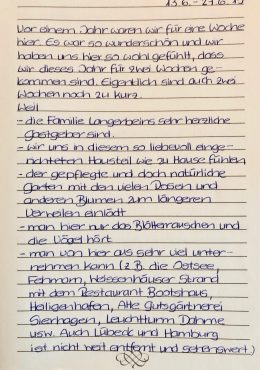 13.6. - 27.6.15
Vor einem Jahr waren wir für eine Woche
hier. Es war so wunderschön und wir
haben uns hier so wohl gefühlt, dass
wir dieses Jahr für zwei Wochen ge-
kommen sind. Eigentlich sind auch zwei
Wochen noch zu kurz.
Weil
- die Familie Langerbeins sehr herzliche
Gastgeber sind.
- wir uns in diesem so liebevoll einge-
richteten Hausteil wie zu Hause fühlen
- der gepflegte und doch natürliche
Garten mit den vielen Rosen und
anderen Blumen zum längeren
Verweilen einlädt
- man hier nur das Blätterrauschen und
die Vögel hört
- man von hier aus sehr viel unter-
nehmen kann (z.B. die Ostsee,
Fehmarn, Weissenhäuser Strand
mit dem Restaurant Bootshaus,
Heiligenhafen, Alte Gutsgärtnerei
Sierhagen, Leuchtturm Dahme
usw. Auch Lübeck und Hamburg
ist nicht weit entfernt und sehenswert.)